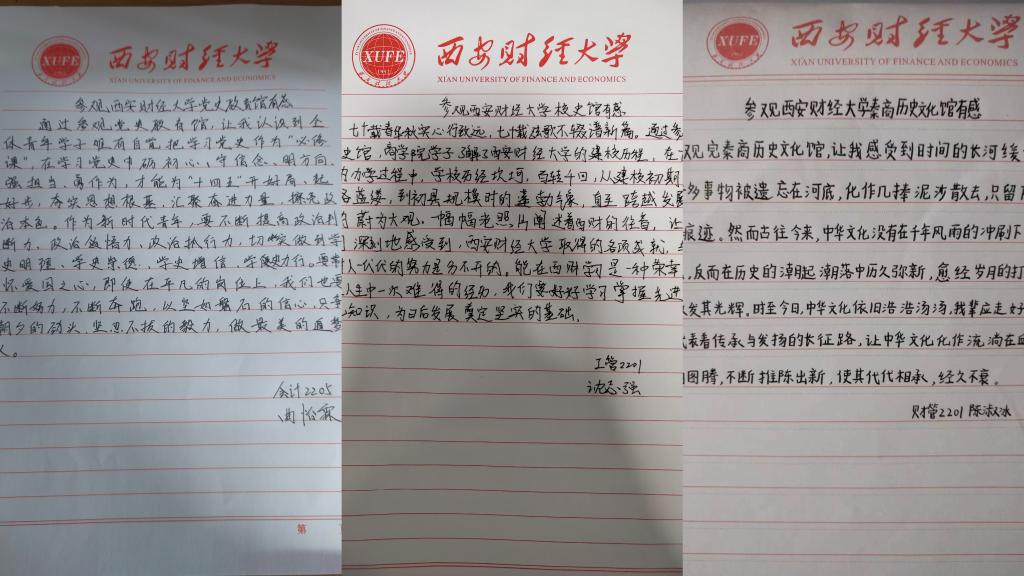 XUFE
西安财经大学
XIAN UNIVERSITY OF FINANCE AND ECONOMICS
参观西安财经大学党史教育馆有感
通过参观党史教育馆，让我认识到全
体青年学子唯有自觉把学习党史作为“必修
课”，在学习党史中砺初心、守信念、明方向、
强担当、勇作为，才能为“十四五”开好局、起
好步，夯实思想根基，汇聚奋进力量，擦亮政
治本色。作为新时代青年，要不断提高政治判
断力、政治领悟力、政治执行力，切实做到学
史明理、学史崇德、学史增信、学史力行。要常
怀爱国之心，即使在平凡的岗位上，我们也要
不断努力，不断奔跑，以坚如磐石的信心，只争
朝夕的劲头，坚忍不拔的毅力，做最美的追梦
人。
会计2205
第
XUFE
西安财经大学
XIAN UNIVERSITY OF FINANCE AND ECONOMICS
参观西安财经大学校史馆有感
七十载春华秋实心行致远，七十载弦歌不辍谱新篇。通过参
史馆，商学院学子了解了西安财经大学的建校历程，在
办学过程中，学校历经坎坷，百转千回，从建校初期
路蓝缕，到初具规模时的蓬勃气象，直至跨越发展
蔚为大观。一幅幅老照片阐述着西财的往昔，让
深刻地感受到，西安财经大学取得的各项成就，与
人代代的努力是分不开的，能在西财学习是一种荣幸
人生中一次难得的经历，我们要好好学习掌握先进
知识，为日后发展奠定坚实的基础。
工管2201
沈志强
XUFE
西安财经大学
XIAN UNIVERSITY OF FINANCE AND ECONOMICS
参观西安财经大学秦商历史文化馆有感
观完秦商历史文化馆，让我感受到时间的长河缓
多事物被遗忘在河底，化作几捧泥沙散去，只留下
痕迹。然而古往今来，中华文化没有在千年风雨的冲刷下
，反而在历史的潮起潮落中历久弥新，愈经岁月的打
发其光辉。时至今日，中华文化依旧浩浩汤汤，我辈应走好
着传承与发扬的长征路，让中华文化化作流淌在血
图腾，不断推陈出新，使其代代相承，经久不衰。
财管2201 陈淑冰